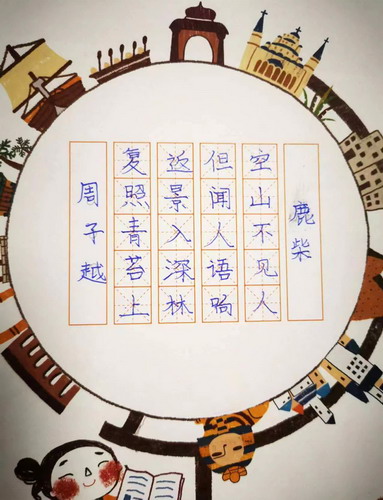 鹿柴
空山不见人
但闻人语响
返景入深林
复照青苔上
周子越